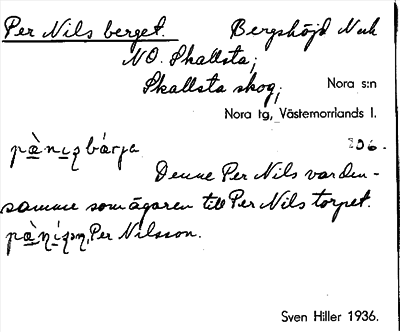 Per Nils berget. Bergshöjd Nuk
NO. Skallsta,
Skallsta skog,
Nora s:n
Nora tg, Västernorrlands l.
206.
Denne Per Nils var den-
samme som ägaren till Per Nils torpet.
Per Nilsson.
Sven Hiller 1936.